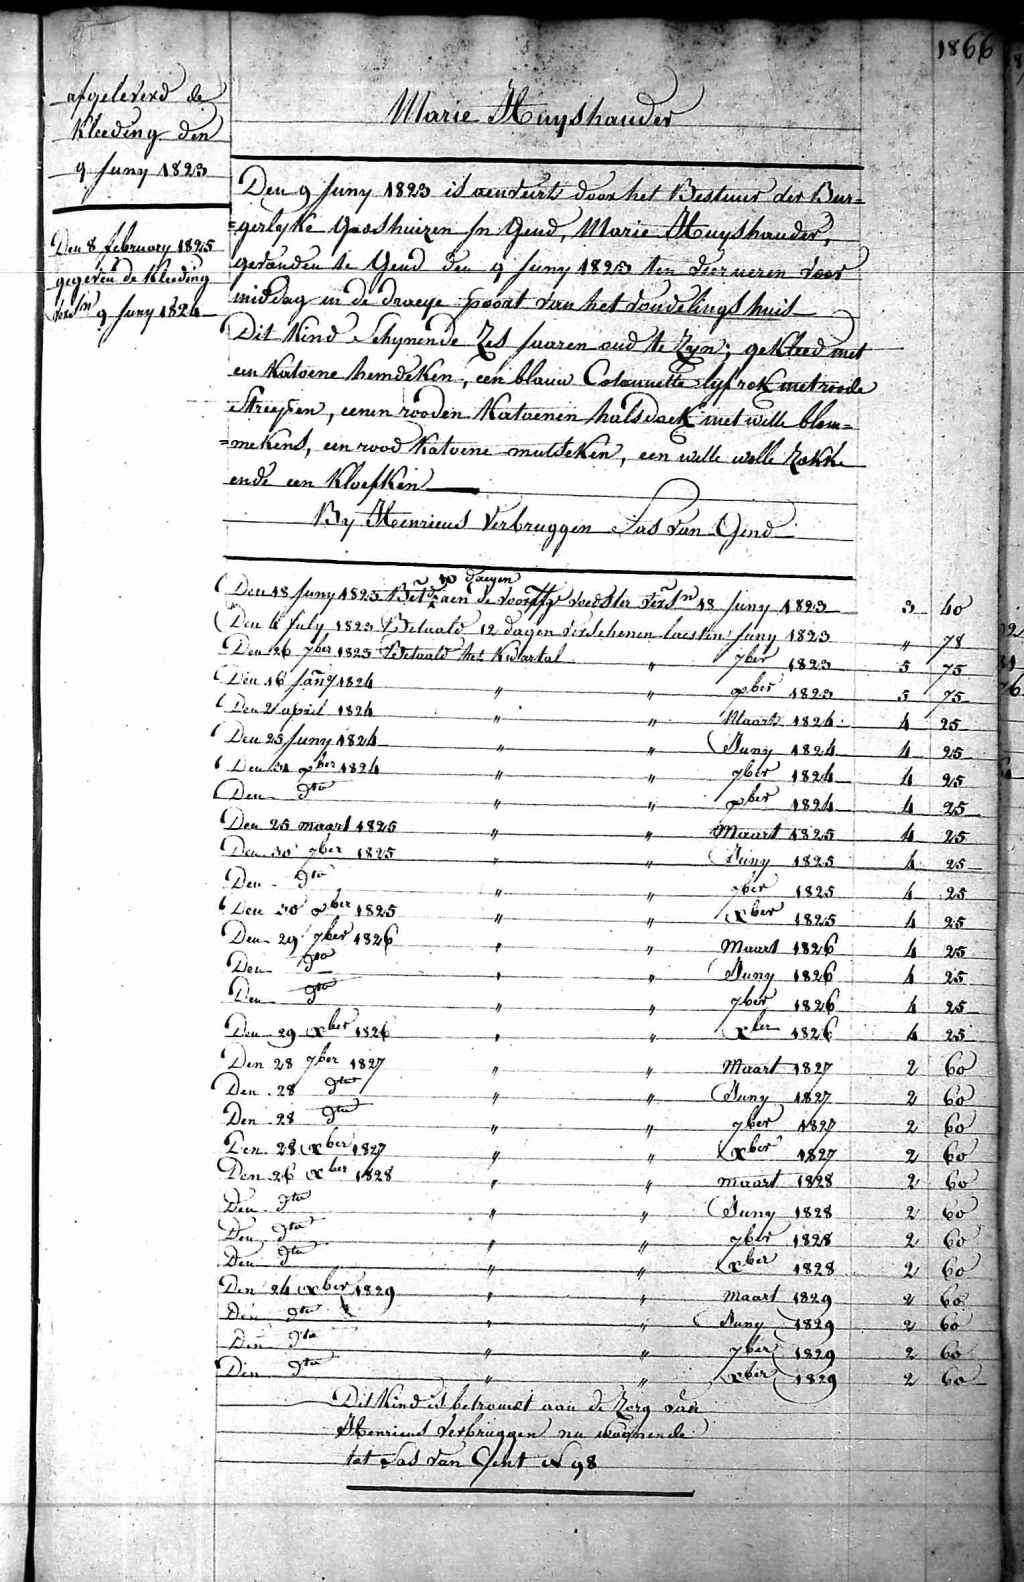 1866
afgeleverd de
Kleeding den
9 Juny 1823
Den 8 february 1825
gegeven de Kleeding
9 Juny 1824
Marie Huyshauder
Den 9 Juny 1823 is aenveirt door het Bestuur der Bur=
=gerlyke Godshuizen in Gend, Marie Huyshauder,
gevonden te Gend den 9 Juny 1823 ten vier ueren voor
middag in de draeye poort van het vondelings huis
Dit Kind schynende Zes Jaaren oud te Zyn; gekleed met
een Katoene hemdeken, een blauw Cotonnette lyfrok met roode
Streepen, eenen rooden Katoenen halsdoek met witte blom=
=mekens, een rood Katoene mutseken, een witte wolle Zokke
ende een Kloefken
By Henricus Verbruggen Sas van Gend
Den 18 Juny 1823 10 daegen de voedster 18 Juny 1823 3 40
Den 6 July 1823 Betaald 12 dagen verschenen laesten Juny 1823 " 78
Den 26 7ber 1823 Betaald het Kwartal " 7ber 1823 5 75
Den 16 Jany 1824 " " xber 1823 5 75
Den 2 april 1824 " " Maart 1824 4 25
Den 25 Juny 1824 " " Juny 1824 4 25
Den 31 xber 1824 " " 7ber 1824 4 25
Den dto " " xber 1824 4 25
Den 25 maart 1825 " " Maart 1825 4 25
Den 30 7ber 1825 " " Juny 1825 4 25
Den dto " " 7ber 1825 4 25
Den 30 xber 1825 " " xber 1825 4 25
Den 29 7ber 1826 " " Maart 1826 4 25
Den dto " " Juny 1826 4 25
Den dto " " 7ber 1826 4 25
Den 29 xber 1826 " " xber 1826 4 25
Den 28 7ber 1827 " " Maart 1827 2 60
Den 28 dto " " Juny 1827 2 60
Den 28 dto " " 7ber 1827 2 60
Den 28 xber 1827 " " xber 1827 2 60
Den 26 xber 1828 " " maart 1828 2 60
Den dto " " Juny 1828 2 60
Den dto " " 7ber 1828 2 60
Den dto " " xber 1828 2 60
Den 24 xber 1829 " " Maart 1829 2 60
Den dto " " Juny 1829 2 60
Den dto " " 7ber 1829 2 60
Den dto " " xber 1829 2 60
Dit Kind is betrouwt aan de Zorg van
Henricus Verbruggen nu woonende
tot Sas van Gent N 98